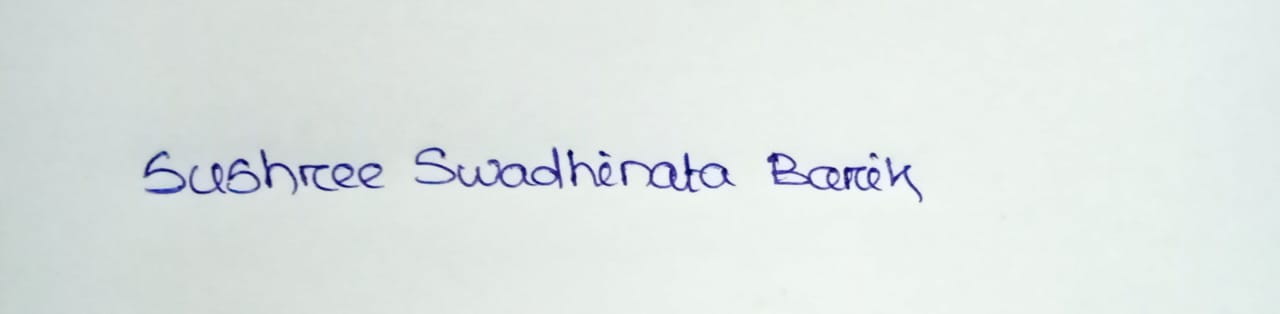 Sushree Swadhinata Barik